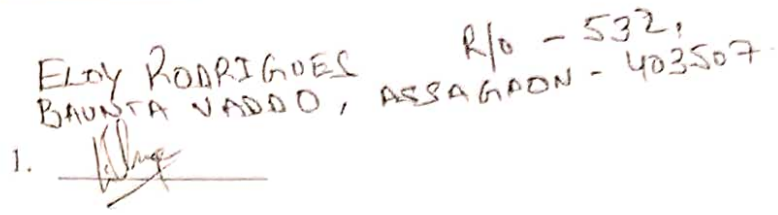 ELOY RODRIGUES R/o - 532,
BAUNTA VADDO, ASSAGAON - 403507.
1.